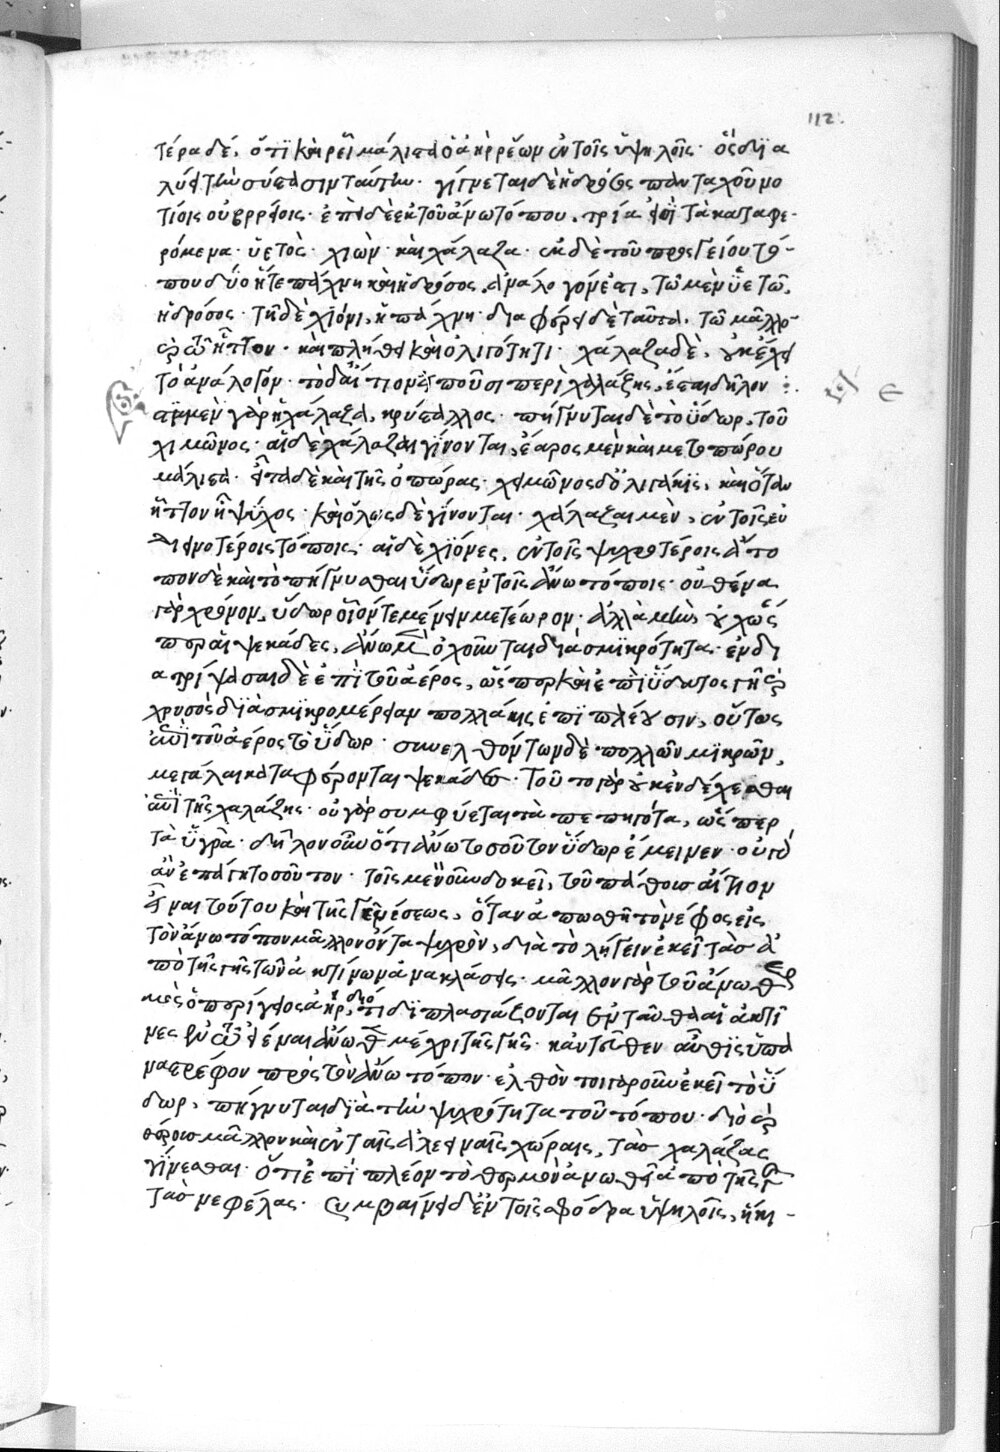 112.
τέρα δέ, ὅτι καὶ ῥεῖ μάλιστα ὁ ἀὴρ ῥέων ἐν τοῖς ὑψηλοῖς· ὃς δια
λύει τὴν σύστασιν ταύτην· γίγνεται δὲ ἡ δρόσος πανταχοῦ νο
τίοις οὐ βορείοις· ἐπεὶ δὲ ἐκ τοῦ ἄνω τόπου, τρία ἐστὶ τὰ καταφε-
ρόμενα· ὑετὸς· χιὼν· καὶ χάλαζα· ἐκ δὲ τοῦ προσγείου τό-
που δύο ἥτε πάχνη καὶ ἡ δρόσος, ἀνάλογόν ἐστι, τῷ μὲν ὑετῷ,
ἡ δρόσος· τῇ δὲ χιόνι, ἡ πάχνη· διαφέρει δὲ ταῦτα, τῷ μᾶλλο-
καὶ ἧττον· καὶ πλήθει καὶ ὀλιγότητι· χάλαζα δὲ, οὐκ ἔχει
τὸ ἀνάλογον· τὸ δ' αἴτιον ἐπ οῦσι περὶ χαλάζης, ἔσται δῆλον
ἔστι μὲν γὰρ ἡ χάλαζα, κρύσταλλος· πήγνυται δὲ τὸ ὕδωρ, τοῦ
χιμῶνος· αἱ δὲ χάλαζαι γίνονται, ἔαρος μὲν καὶ μετοπώρου
μάλιστα· εἶτα δὲ καὶ τῆς ὀπώρας· χειμῶνος δ' ὀλιγάκις, καὶ ὅταν
ἧττον ἢ ψύχος· καὶ ὅλως δὲ γίνονται· χάλαζαι μὲν, ἐν τοῖς εὐ
διεινοτέροις τόποις· αἱ δὲ χιόνες, ἐν τοῖς ψυχροτέροις ἄτο
πον δὲ καὶ τὸ πήγνυσθαι ὕδωρ ἐν τοῖς ἄνω τόποις· οὐθ ἕνα
γὰρ χρόνον, ὕδωρ οἷόν τε μένειν μετέωρον· ἀλλὰ μὴν, οὐχ ὥς
περ αἱ ψεκάδες, ἄνω μὲν ὀχοῦνται διὰ σμικρότητα· ἐνδι
ατρίψασαι δὲ ἐπὶ τοῦ ἀέρος, ὥς περ καὶ ἐπὶ ὕδατος γῆ καὶ
χρυσὸς διὰ σμικρομέρειαν πολλάκις ἐπιπλέουσιν, οὕτως
ἐπὶ τοῦ ἀέρος τὸ ὕδωρ· συνελθόντων δὲ πολλῶν μικρῶν,
μεγάλαι καταφέρονται ψεκάδες· τοῦτο γὰρ οὐκ ἐνδέχεσθαι
ἐπὶ τῆς χαλάζης· οὐ γὰρ συμφύεται τὰ πεπηγότα, ὥς περ
τὰ ὑγρὰ· δῆλον οὖν ὅτι ἄνω τοσοῦτον ὕδωρ ἔμεινεν· οὐ γὰρ
ἂν ἐπάγη τοσοῦτον· τοῖς μὲν οὖν δοκεῖ, τοῦ πάθους αἴτιον
εἶναι τούτου καὶ τῆς γενέσεως, ὅταν ἀπωσθῇ τὸ νέφος εἰς
τὸν ἄνω τόπον μᾶλλον ὄντα ψυχρὸν, διὰ τὸ λήγειν ἐκεῖ τὰς ἀ
πὸ τῆς γῆς τῶν ἀκτίνων ἀνακλάσεις· μᾶλλον γὰρ τοῦ ἄνωθεν
διὸ
μες
μέχρι τῆς γῆς· καντεῦθεν αὖθις ὑπὸ
πρὸς τὸν ἄνω τόπον· ἐλθὸν τοιγαροῦν ἐκεῖ τὸ ὕ
δωρ, πήγνυται διὰ τὴν ψυχρότητα τοῦ τόπου· διὸ καὶ
θέρους μᾶλλον καὶ ἐν ταῖς ἀλεειναῖς χώραις, τὰς χαλάζας
γίνεσθαι· ὅτι ἐπὶ πλέον τὸ θερμὸν ἀνωθεῖ ἀπὸ τῆς γῆς
τὰς νεφέλας· συμβαίνει δ' ἐν τοῖς σφόδρα ὑψηλοῖς, ἥκι-